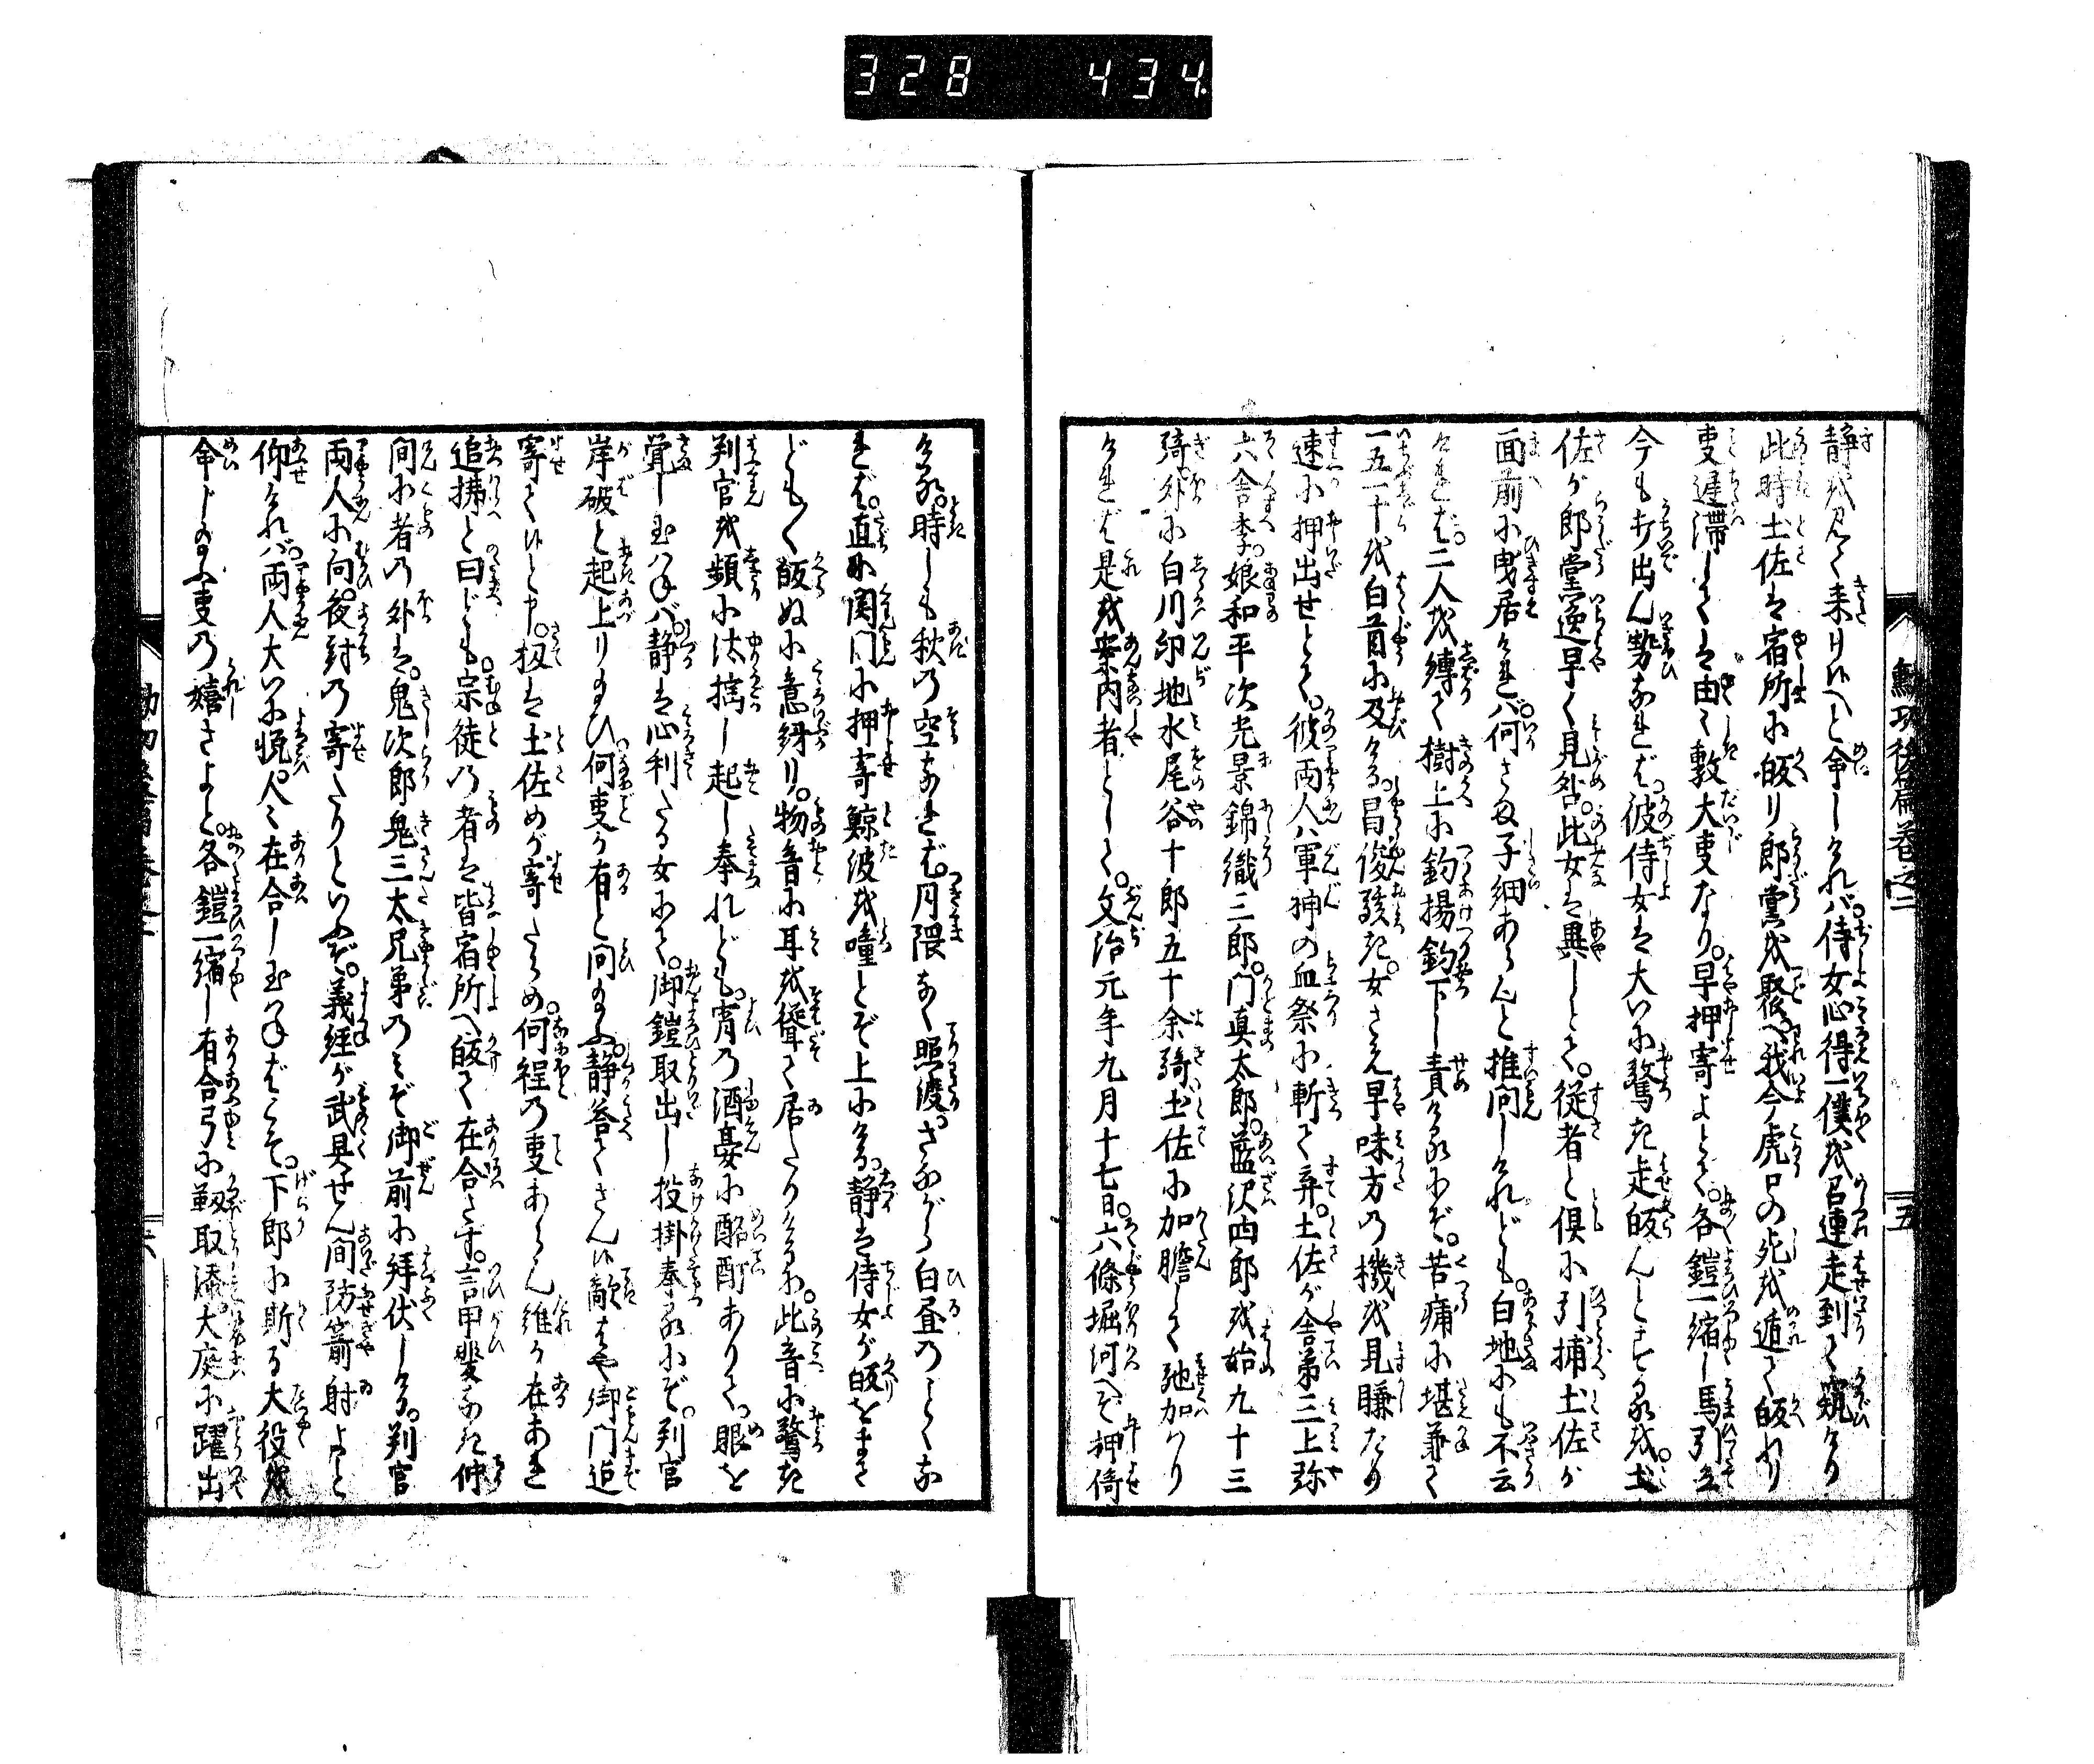 328 434
静を見て来り候へと命しければ。侍女心得一僕を召連走到て窺けり
此時土佐は宿所に皈り郎黨を聚へ。我今虎口の死を遁て皈れり
事遅滞しては由々敷大事なり。早押寄よとて。各鎧一縮し馬引立
今も打出ん勢なれば。彼侍女は大いに驚き走皈んとするを。土
佐が郎黨逸早く見咎。此女は異しとて。従者と倶に引捕土佐が
面前に曳居ければ。何さま子細あらんと推問しけれども。白地にも不云
ければ。二人を縛て樹上に釣揚釣下し責けるにぞ。苦痛に堪兼て
一五一十を白首に及ける。昌俊駭き。女さえ早味方の機を見賺たり
速に押出せとて。彼両人八軍神の血祭に斬て弃。土佐が舎弟三上弥
六舎季。娘和平次光景錦織三郎。門真太郎。藍沢四郎を始九十三
騎。外に白川印地水尾谷十郎五十余騎土佐に加膽して馳加はり
ければ是を案内者として。文治元年九月十七日。六條堀河へぞ押倚
ける。時しも秋の空なれば。月隈なく照渡。さながら白昼のごとくな
れば。直に関門に押寄鯨波を噇とぞ上にける。静は侍女が皈をまて
ども〱皈ぬに意紛り。物音に耳を聳て居たりけるに。此音に驚き
判官を頻に汰擕し起し奉れども。宵の酒宴に酩酊ありて。眼を
覚し玉はねば。静は心利たる女にて。御鎧取出し投掛奉るにぞ。判官
岸破と起上り給ひ。何事か有と問給ふ。静答てさん候敵はや御門迠
寄て候と申。扨は土佐めが寄たらめ。何程の事あらん維か在あれ
追拂と曰ども。宗徒の者は皆宿所へ皈て在合さず。言甲斐なき仲
間小者の外は。鬼次郎鬼三太兄弟のみぞ御前に拜伏しける。判官
両人に向。夜討の寄たりといふぞ。義経が武具せん間防箭射よと
仰ければ。両人大いに悦。人々在合し玉はねばこそ。下郎に斯る大役を
命じ給ふ事の嬉さよと。各鎧一縮し有合弓に靱取添。大庭に躍出